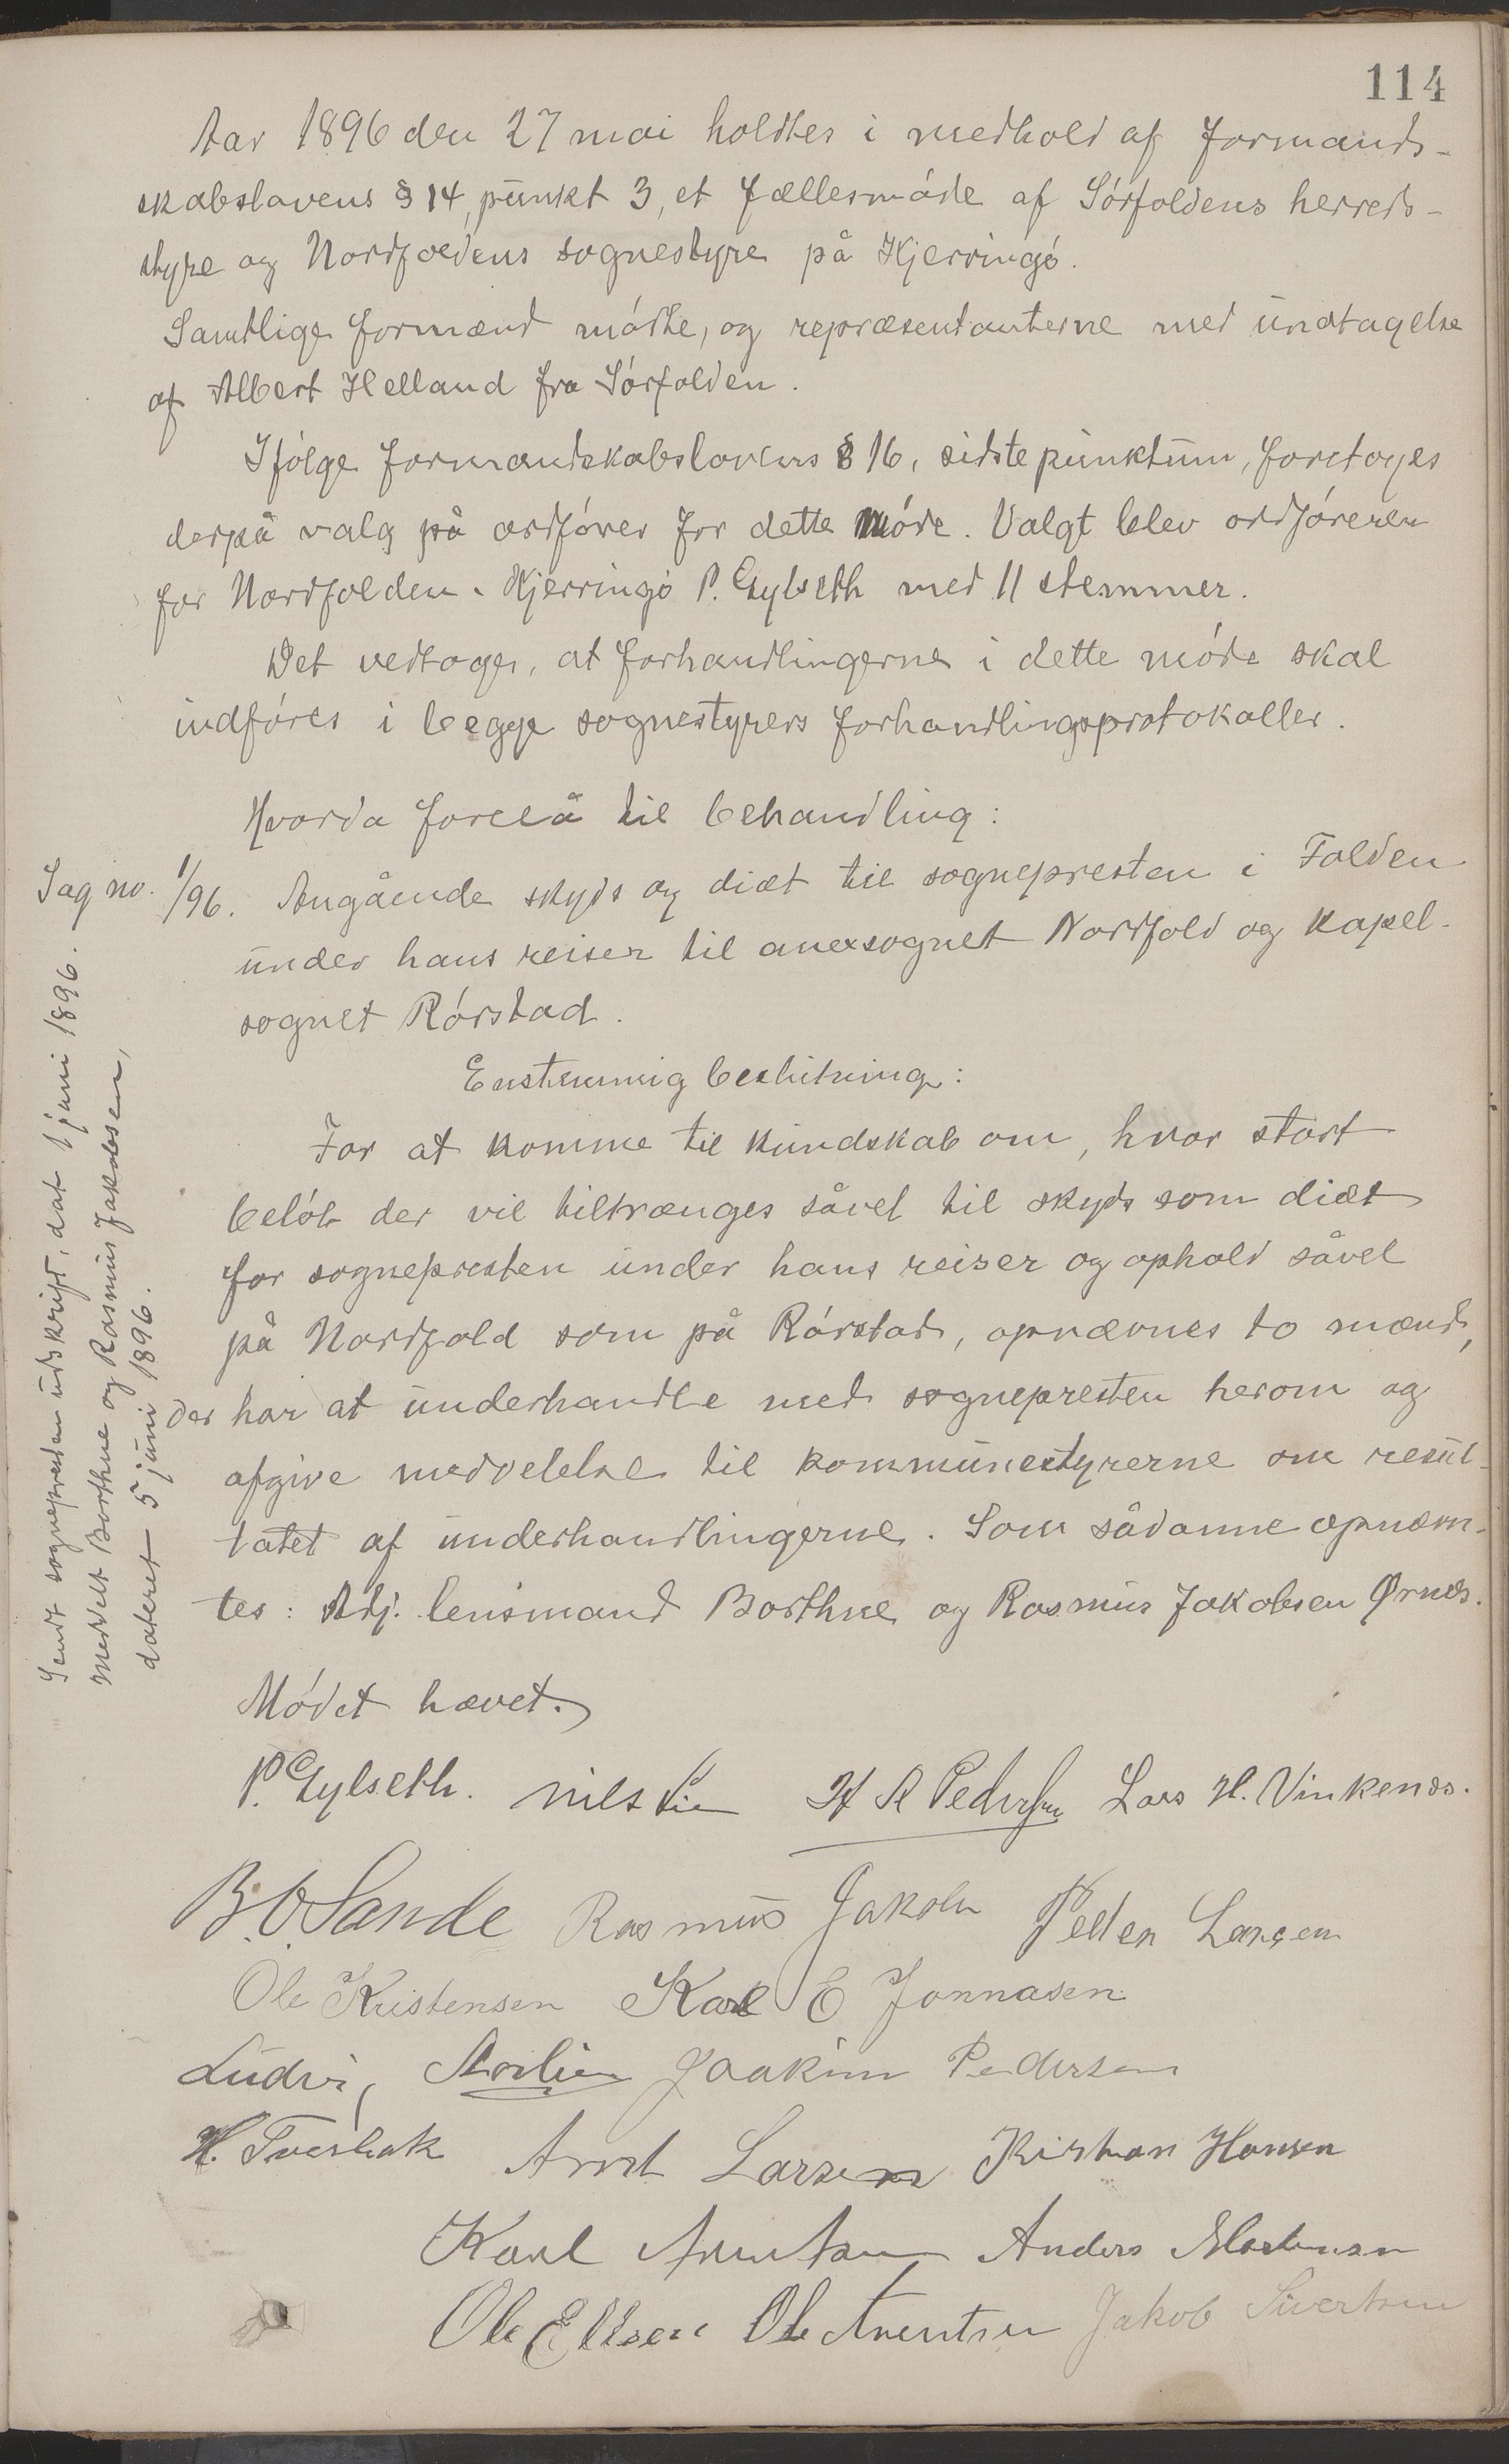 114
Aar 1896 den 27 mai holdtes i medhold af formands-
skabslovens § 14, punkt 3, et fællesmóde af Sórfoldens herreds-
styre og Nordfoldens sognestyre på Kjerringó.
Samtlige formænd módte, og repræsentanterne med undtagelse
af Albert Helland fra Sórfolden.
Ifólge formandskabslovens § 16, sidste punktum, foretoges
derpå valg på ordfórer for dette móde. Valgt blev ordfóreren
for Nordfolden-Kjerringó P. Gylseth med 11 stemmer.
Det vedtoges, at forhandlingerne i dette móde skal
indfóres i begge sognestyrers forhandlingsprotokoller.
Hvorda forelå til behandling:
Sag no. 1/96. Angående skyds og diæt til sognepresten i Folden
under hans reiser til anexsognet Nordfold og kapel-
sognet Rórstad.
Enstemmig beslutning:
For at komme til kundskab om, hvor stort
belób der vil tiltrænges såvel til skyds som diæt
for sognepresten under hans reiser og ophold såvel
på Nordfold som på Rórstad, opnævnes to mænd,
der har at underhandle med sognepresten herom og
afgive meddelelse til kommunestyrerne om resul-
tatet af underhandlingerne. Som sådanne opnævn-
tes: Adj. lensmand Borthne og Rasmus Jakobsen Ørnes.
Sendt sognepresten udskrift, dat 1 juni 1896.
Meddelt Borthne og Rasmus Jakobsen,
dateret 5 juni 1896.
Módet hævet.
P. Gylseth. Nils Lie H A Pedersen Lars H. Vinkenes.
B. O. Sande Rasmus Jakobs Peder Larsen
Ole Kristensen Karl E Jonnasen
Ludvi, Joakim Pedersen
H. Tverbak Arnt Larsen Kristian Hansen
Karl Arntsen Anders Mortensen
Ole Ellsen Ole Arentsen Jakob Sivertsen